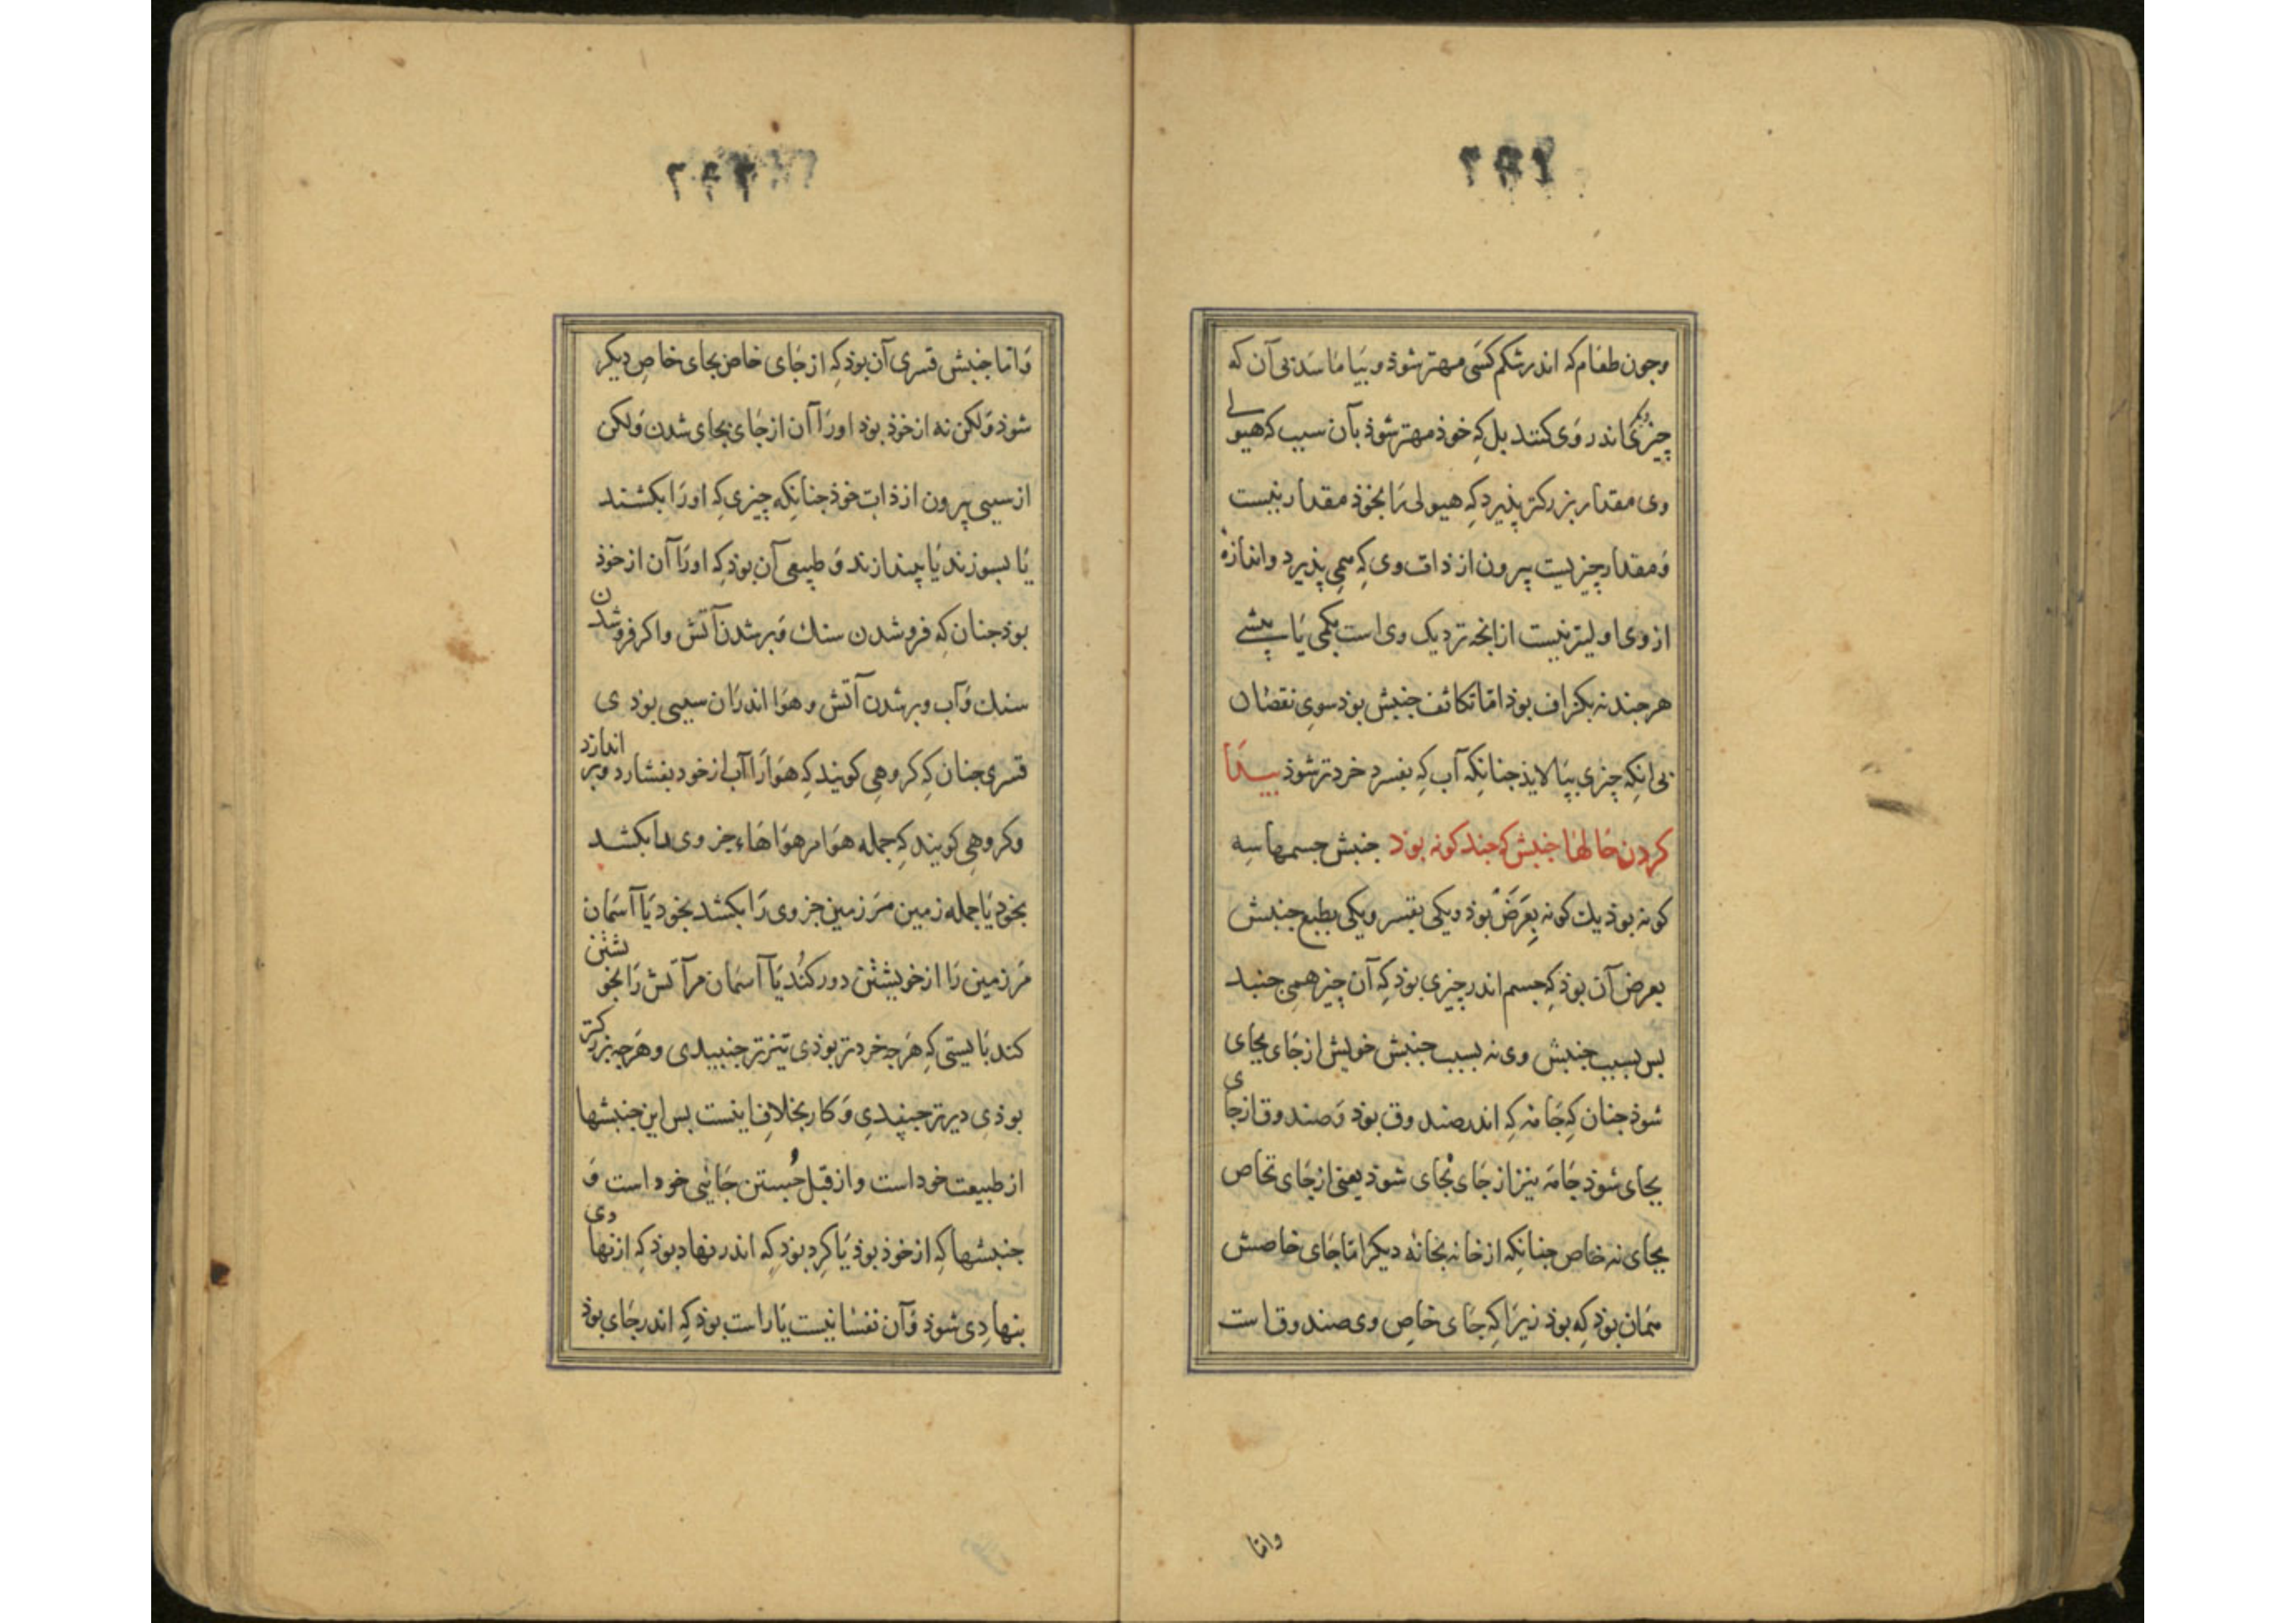 وجون طعام که اندر شکم کسی مهتر شوذ و بیاماسد بی آن که
چیزی دیکر اندر وی کنند بل کِه خوذ مهتر شوذ بآن سبب که هیولی
وی مقدار بزرکتر پذیرد کِه هیولی رَا بخوذ مقدار نیست
وَمقدار چیزیست بیرون از ذات وی کِه همی پذیرد واندازهٔ
از وی اولیتر نیست ازانجه نزدیک وی است بکمی یَا بیشی
هرجند نه بکزاف بوذ امّا تکاثف جنبش بوذ سویِ نقصَان
بی انکِه چیزی بپالایذ جنانکِه آب کِه بفسرد خردتر شوذ بیدَا
کردن حَالهَا جنبش کِه جند کونه بوَد جنبش جسمها سِه
کونه بوذ یك کونه بِعَرَضْ بوذ ویکی بقسر ویکی بطبع جنبش
بعرض آن بوذ کِه جسم اندر چیزی بوذ کِه آن چیز همی جنبد
بس بسبب جنبش وی نه بسبب جنبش خویش از جَای بجای
شوذ جنان کِه جَامه کِه اندر صندوق بوذ وَصندوق از جای
بجای شوذ جَامَه نیز از جَای بْجای شوذ یعنی از جَای خاص
بجای نه خاص جنانکِه از خانه بخانهٔ دیکر امّا جَای خاصش
همَان بوذ کِه بوذ زیرَا کِه جَای خاصِ وی صندوق است
وامّا
وَامّا جنبش قسری آن بوذ کِه از جَای خاص بجای خاصِ دیکر
شوذ وَلکن نه از خوذ بوذ اورَا آن از جَای بجای شدن وَلکن
از سببی بیرون از ذات خوذ جنانکِه چیزی کِه اورَا بکشند
یَا بسوزند یَا بیندازند وَ طبیعی آن بوذ کِه اورَا آن از خوذ
بوذ جنان کِه فروشدن سنك وَبرشدن آتش واکر فروشدن
سنك وَآب وبرشدن آتش وهوَا اندرَان سببی بوذی
قسری جنان کِه کروهی کویند کِه هَوَا رَا آب از خود بفشارد وبر اندازد
وکروهی کویند کِه جمله هوَا مر هوَاهَاء جزوی را بکشد
بخود یَا جمله زمین مَر زمین جزوی رَا بکشد بخود یَا آسمَان
مَر زمین رَا از خویشتن دور کُند یَا آسمَان مر آتش رَا بخویشتن
کند بَایستی کِه هَرجه خردتر بوذی تیزتر جنبیدی وهَرجه بزرکتر
بوذی دیرتر جنبیدی وَ کار بخلافِ اینست بس این جنبشها
از طبیعت خود است واز قبل جُستن جَایی خود است وَ
جنبشها کِه از خوذ بوذ یَا کِرد بوذ کِه اندر نهاد بوذ کِه از نهادی
بنهادِی شوذ وَآن نفسَانیست یَا راست بوذ کِه اندر جَای بوذ